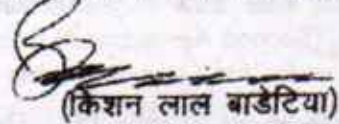 (किशन लाल बाडेटिया)